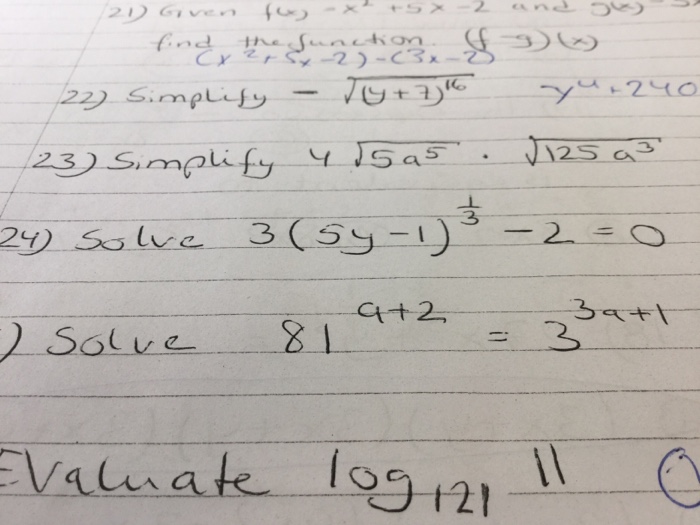 21) Given f(x) = x² + 5x - 2 and g(x)
find the function. (f-g)(x)
(x² + 5x - 2) - (3x - 2)
22) Simplify - √(y+7)¹⁶ y⁴ + 240
23) Simplify 4 √5a⁵ . √125a³
24) Solve 3(5y-1)^(1/3) - 2 = 0
) Solve 81^(a+2) = 3^(3a+1)
Evaluate log₁₂₁ 11